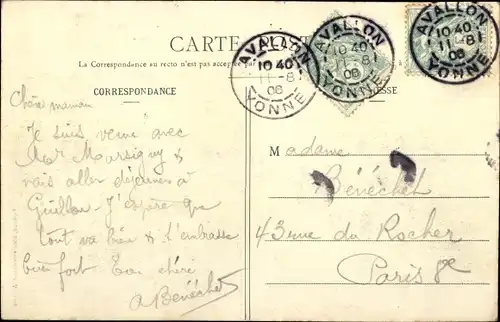 CARTE
La Correspondance au recto n'est pas
CORRESPONDANCE
AVALLON
10 40
11-8
08
YONNE
AVALLON
10 40
11-8
08
YONNE
AVALLON
10 40
11-8
08
YONNE
Chère maman
Je suis venue avec
Marsigny &
vais aller déjeuner à
Guillon. J'espère que
tout va bien & t'embrasse
bien fort Ton chéri
A Bénéchet
Madame
Bénéchet
43 rue du Rocher
Paris 8e